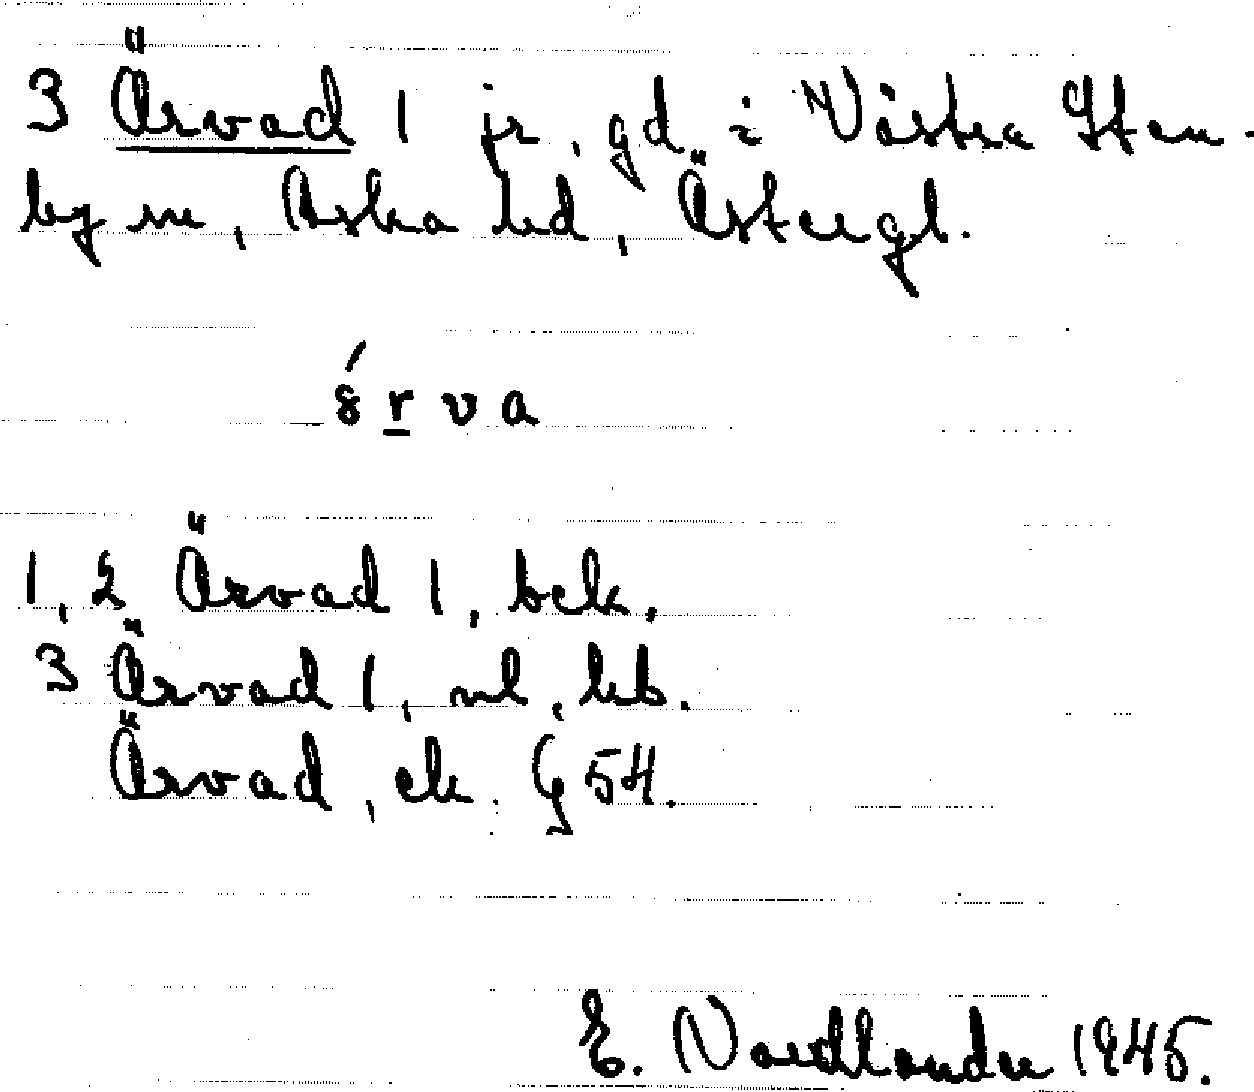 3 Örvad 1 jr, gd i Västra Sten-
by sn, Aska hd, Östergl.
8́ r̲ v a
1, 2 Örvad 1, bek.
3 Örvad 1, ml, kb.
Örvad, ek. § 54.
E. Nordlander 1945.